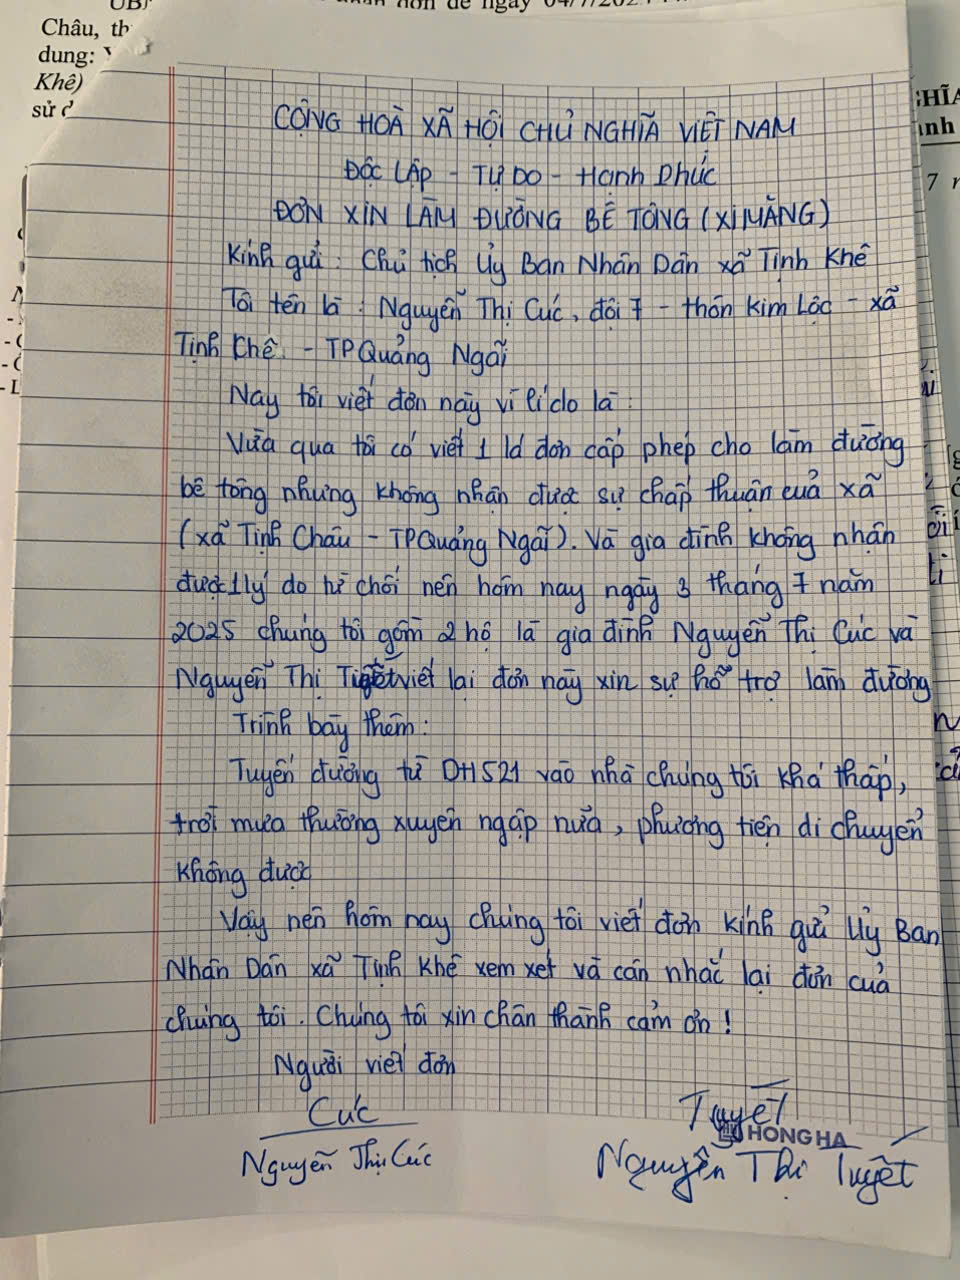 UB
Châu, th
dung:
Khê)
sử d
ngày 04/7/202
GHĨA
ành
7
CỘNG HOÀ XÃ HỘI CHỦ NGHĨA VIỆT NAM
ĐỘC LẬP - TỰ DO - Hạnh Phúc
ĐƠN XIN LÀM ĐƯỜNG BÊ TÔNG (XI MĂNG)
Kính gửi : Chủ tịch Uỷ Ban Nhân Dân xã Tịnh Khê
Tôi tên là : Nguyễn Thị Cúc, đội 7 - thôn Kim Lộc - xã
Tịnh Khê - TP Quảng Ngãi
Nay tôi viết đơn này vì lí do là :
Vừa qua tôi có viết 1 lá đơn cấp phép cho làm đường
bê tông nhưng không nhận được sự chấp thuận của xã
(xã Tịnh Châu - TP Quảng Ngãi). Và gia đình không nhận
được 1 lý do từ chối nên hôm nay ngày 3 tháng 7 năm
2025 chúng tôi gồm 2 hộ là gia đình Nguyễn Thị Cúc và
Nguyễn Thị Tuyết viết lại đơn này xin sự hỗ trợ làm đường
Trình bày thêm :
Tuyến đường từ DH521 vào nhà chúng tôi khá thấp,
trời mưa thường xuyên ngập nửa, phương tiện di chuyển
không được
Vậy nên hôm nay chúng tôi viết đơn kính gửi Uỷ Ban
Nhân Dân xã Tịnh Khê xem xét và cân nhắc lại đơn của
chúng tôi. Chúng tôi xin chân thành cảm ơn !
Người viết đơn
Cúc
Tuyết
HONG HA
Nguyễn Thị Cúc
Nguyễn Thị Tuyết